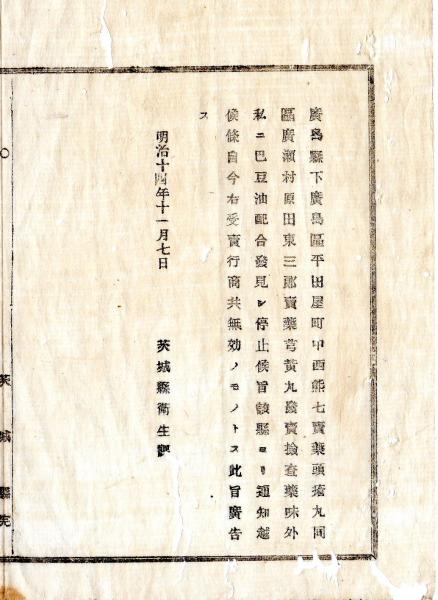 廣島縣下廣島區平田屋町中西熊七賣藥頭瘡丸同
區廣瀬村原田東三郎賣藥芎黃丸發賣檢査藥味外
私ニ巴豆油配合發見シ停止候旨該縣ヨリ通知越
候條自今右受賣行商共無効ノモノトス此旨廣告
ス
明治十四年十一月七日
茨城縣衛生課
茨城縣